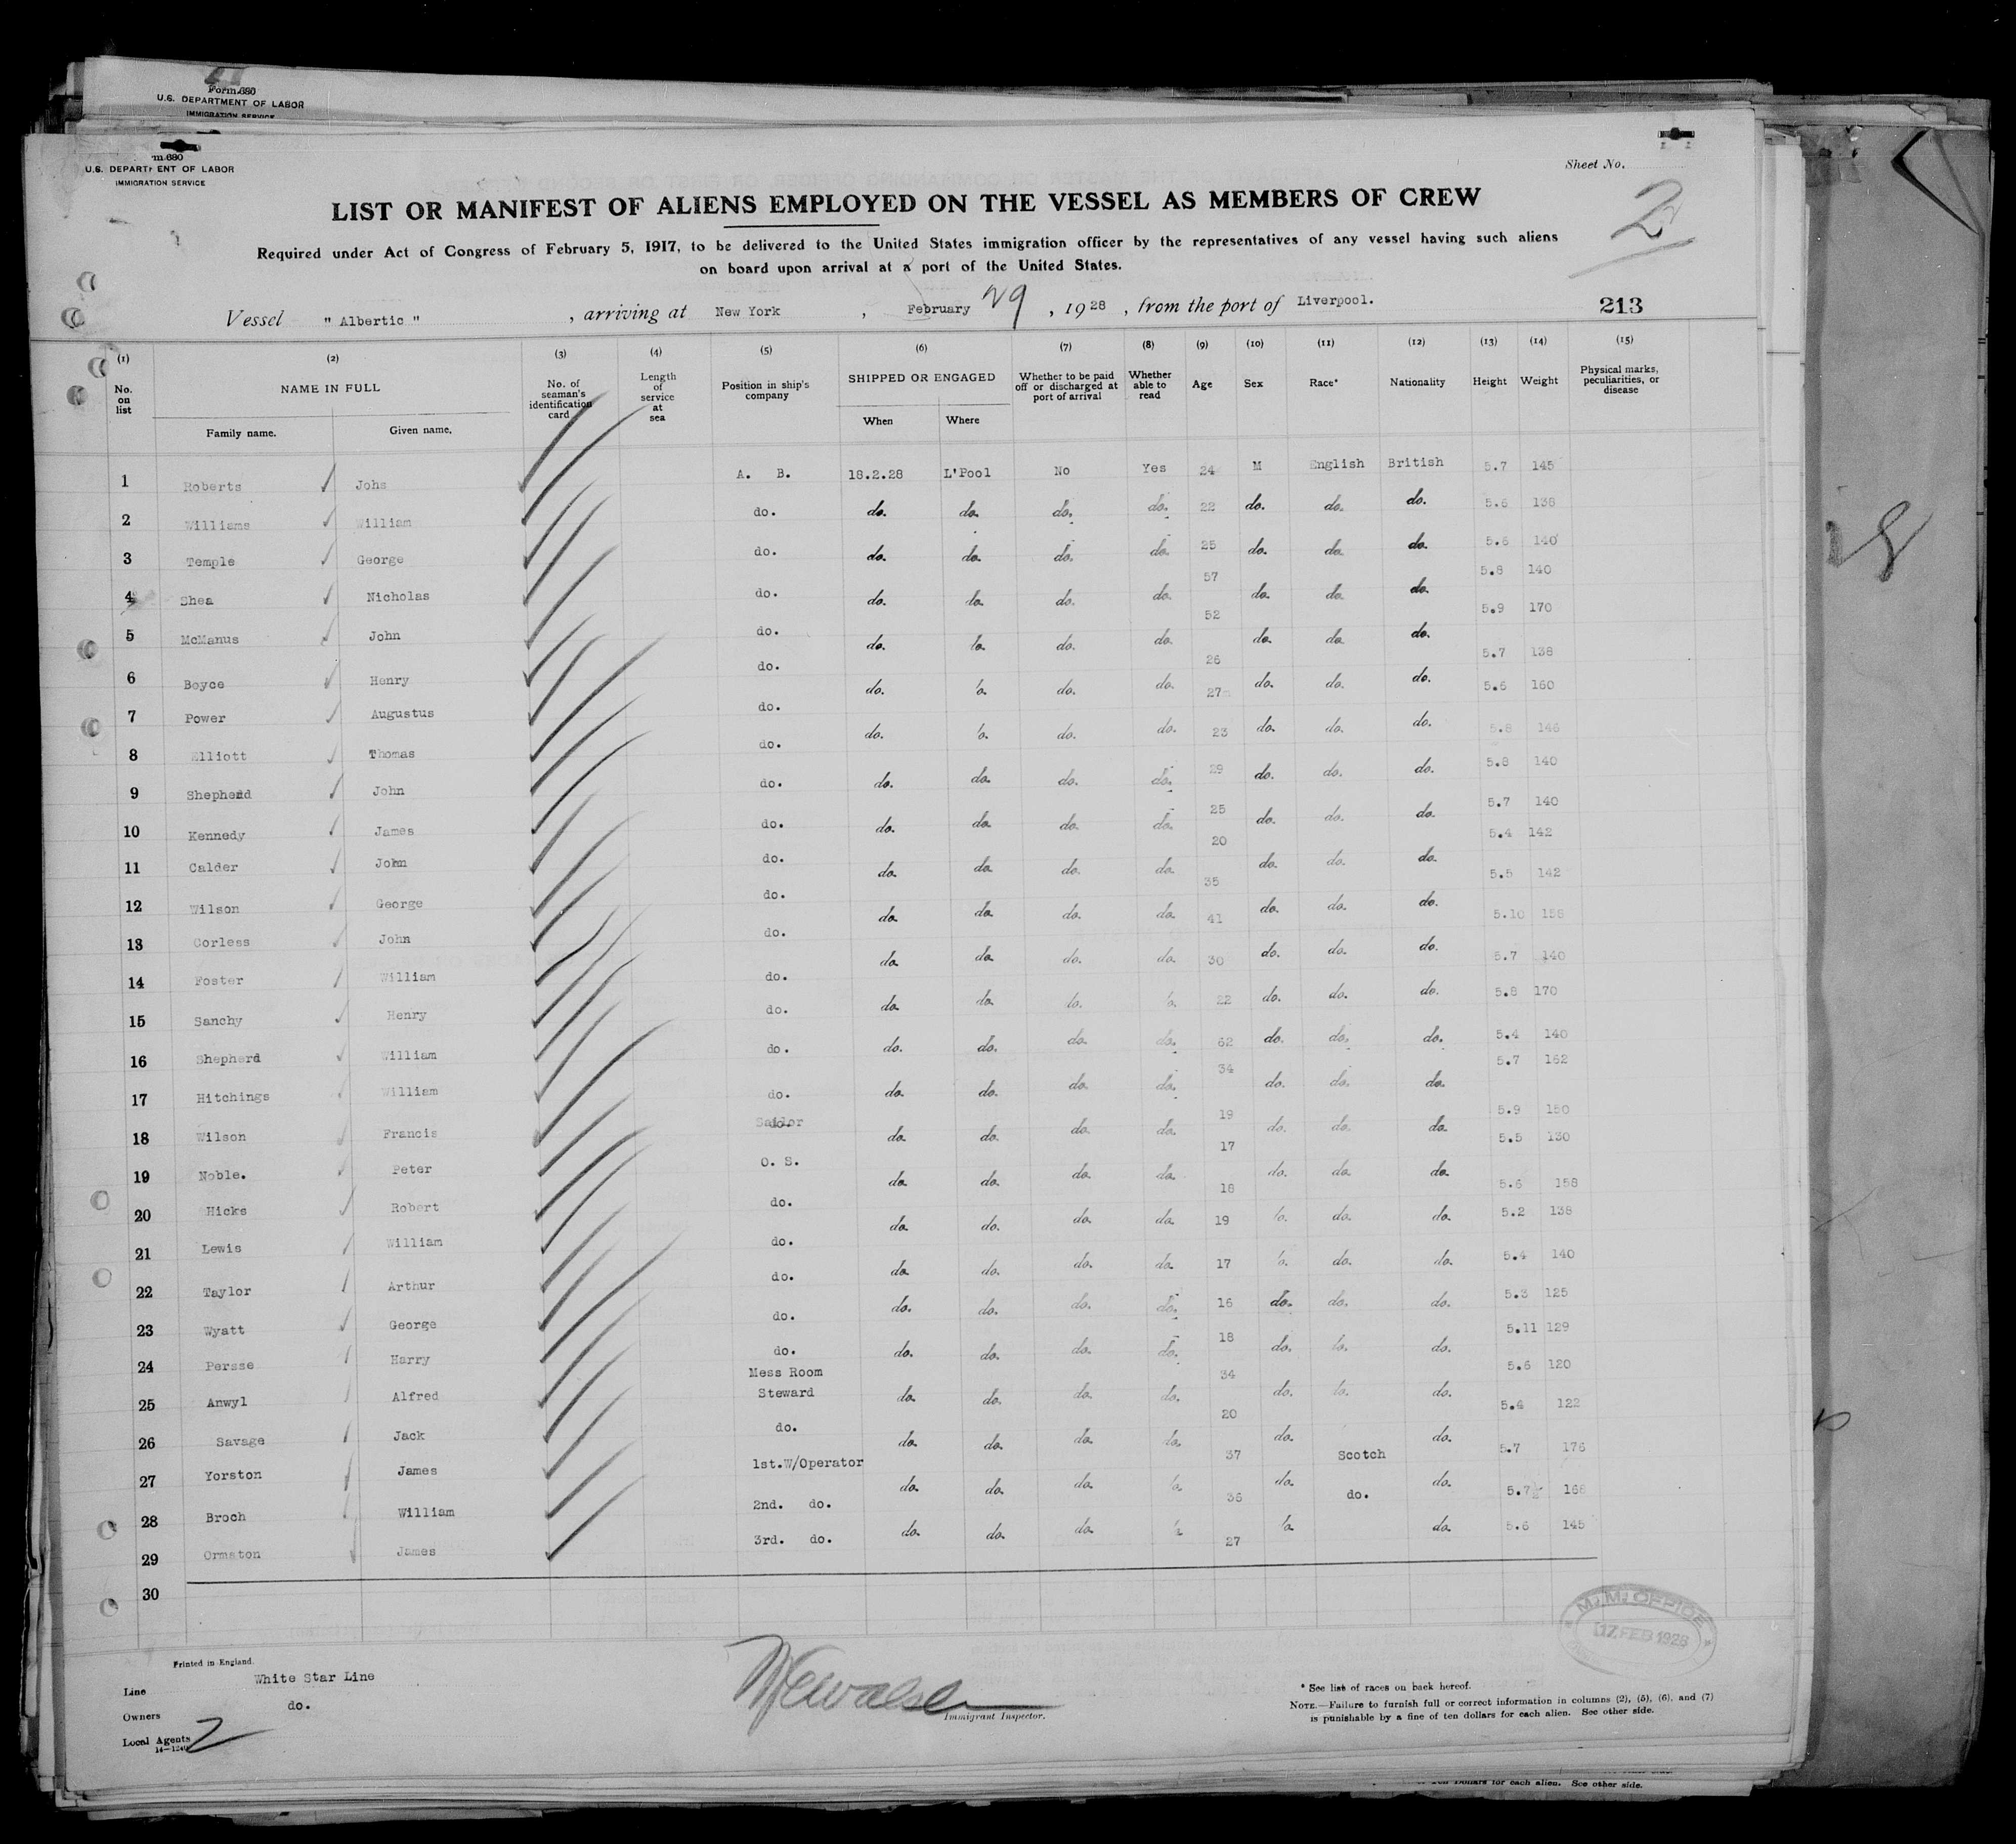 Form 680
U.S. DEPARTMENT OF LABOR
IMMIGRATION SERVICE
m 680
U.S. DEPARTMENT OF LABOR
IMMIGRATION SERVICE
Sheet No.
2
LIST OR MANIFEST OF ALIENS EMPLOYED ON THE VESSEL AS MEMBERS OF CREW
Required under Act of Congress of February 5, 1917, to be delivered to the United States immigration officer by the representatives of any vessel having such aliens
on board upon arrival at a port of the United States.
Vessel " Albertic " , arriving at New York , February 29 , 1928 , from the port of Liverpool. 213
(1) (2) (3) (4) (5) (6) (7) (8) (9) (10) (11) (12) (13) (14) (15)
No. on list NAME IN FULL Family name. Given name. No. of seaman's identification card Length of service at sea Position in ship's company SHIPPED OR ENGAGED When Where Whether to be paid off or discharged at port of arrival Whether able to read Age Sex Race* Nationality Height Weight Physical marks, peculiarities, or disease
1 Roberts John A. B. 18.2.28 L'Pool No Yes 24 M English British 5.7 145
2 Williams William do. do. do. do. do. 22 do. do. do. 5.6 138
3 Temple George do. do. do. do. do. 25 do. do. do. 5.6 140
4 Shea Nicholas do. do. do. do. do. 57 do. do. do. 5.8 140
5 McManus John do. do. do. do. do. 52 do. do. do. 5.9 170
6 Boyce Henry do. do. do. do. do. 26 do. do. do. 5.7 138
7 Power Augustus do. do. do. do. do. 27 do. do. do. 5.6 160
8 Elliott Thomas do. 23 5.8 146
9 Shepherd John do. do. do. do. do. 29 do. do. do. 5.8 140
10 Kennedy James do. do. do. do. do. 25 do. do. do. 5.7 140
11 Calder John do. do. do. do. do. 20 do. do. do. 5.4 142
12 Wilson George do. do. do. do. do. 35 do. do. do. 5.5 142
13 Corless John do. do. do. do. do. 41 do. do. do. 5.10 158
14 Foster William do. do. do. do. do. 30 do. do. do. 5.7 140
15 Sanchy Henry do. do. do. do. do. 22 do. do. do. 5.8 170
16 Shepherd William do. do. do. do. do. 62 do. do. do. 5.4 140
17 Hitchings William do. do. do. do. do. 34 do. do. do. 5.7 162
18 Wilson Francis Sailor do. do. do. do. 19 do. do. do. 5.9 150
19 Noble. Peter O. S. do. do. do. do. 17 do. do. do. 5.5 130
20 Hicks Robert do. do. do. do. do. 18 do. do. do. 5.6 158
21 Lewis William do. do. do. do. do. 19 do. do. do. 5.2 138
22 Taylor Arthur do. do. do. do. do. 17 do. do. do. 5.4 140
23 Wyatt George do. do. do. do. do. 16 do. do. do. 5.3 125
24 Persse Harry do. do. do. do. do. 18 do. do. do. 5.11 129
25 Anwyl Alfred Mess Room Steward do. do. do. do. 34 do. do. do. 5.6 120
26 Savage Jack do. do. do. do. do. 20 do. do. 5.4 122
27 Yorston James 1st.W/Operator do. do. do. do. 37 do. Scotch do. 5.7 176
28 Broch William 2nd. do. do. do. do. do. 36 do. do. do. 5.7½ 166
29 Ormaton James 3rd. do. 27 5.6 145
30
M.M. OFFICE
17 FEB 1928
Printed in England.
Line White Star Line
Owners do.
Local Agents
14-1240
2
Immigrant Inspector.
* See list of races on back hereof.
NOTE.—Failure to furnish full or correct information in columns (2), (5), (6), and (7)
is punishable by a fine of ten dollars for each alien. See other side.
Ten Dollars for each alien. See other side.